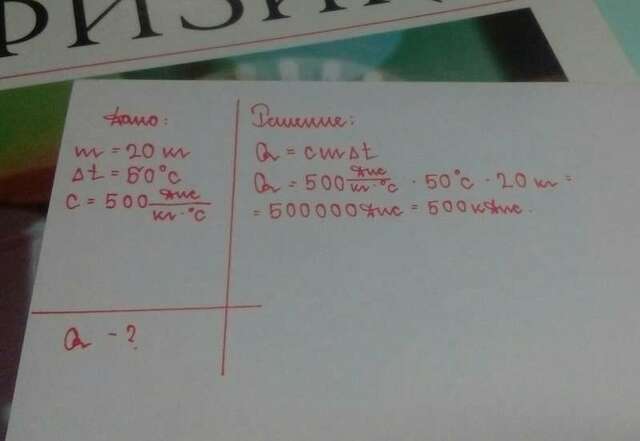 ФИЗИК
Дано:
m = 20 кг
Δt = 50°C
c = 500 Дж/кг·°C
Q - ?
Решение:
Q = cmΔt
Q = 500 Дж/кг·°C · 50°C · 20 кг =
= 500000 Дж = 500 кДж.